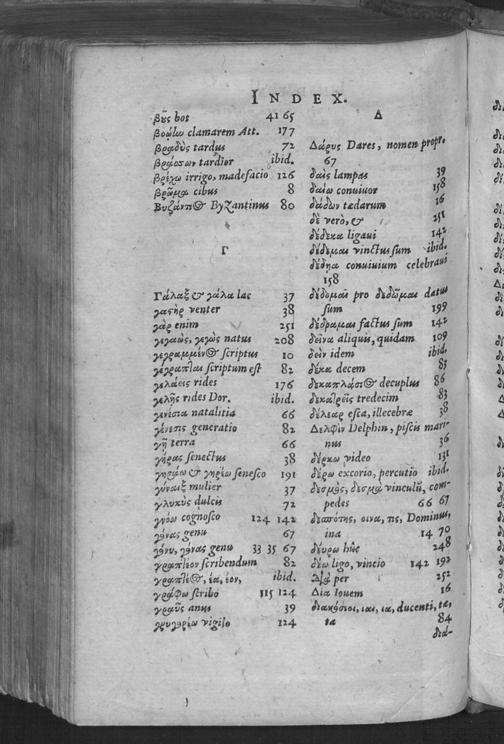 INDEX.
βοῦς bos 41 65
βοώω clamarem Att. 177
βραδὺς tardus 72
βράσσων tardior ibid.
βρέχω irrigo, madefacio 126
βρῶμα cibus 8
Βυζάντιος Byzantinus 80
Γ
Γάλαξ & γάλα lac 37
γαστὴρ venter 38
γὰρ enim 251
γεγαὼς, γεγὼς natus 208
γεγραμμένος scriptus 10
γέγραπται scriptum est 82
γελάεις rides 176
γελῇς rides Dor. ibid.
γενέσια natalitia 66
γένεσις generatio 82
γῆ terra 66
γῆρας senectus 38
γηράω & γηρέω senesco 191
γύναιξ mulier 37
γλυκὺς dulcis 72
γνόω cognosco 124 142
γόνας genu 67
γόνυ, γόνας genu 33 35 67
γραπτέον scribendum 82
γραπτέος, έα, έον, ibid.
γράφω scribo 115 124
γραῦς anus 39
γρηγορέω vigilo 124
Δ
Δάρης Dares, nomen propr.
67
δαῒς lampas 39
δαίω conuiuor 158
δάδων tædarum 16
δὲ verò, & 251
δέδεκα ligaui 142
δέδεμαι vinctus sum ibid.
δέδηα conuiuium celebraui
158
δέδομαι pro δέδωμαι datus
sum 199
δέδραμαι factus sum 142
δεῖνα aliquis, quidam 109
δεὶν idem ibid.
δέκα decem 83
δεκαπλάσιος decuplus 86
δεκατρεῖς tredecim 83
δέλεαρ esca, illecebræ 38
Δελφὶν Delphin, piscis mari-
nus 36
δέρκω video 131
δέρω excorio, percutio ibid.
δεσμὸς, δεσμὰ vinculũ, com-
pedes 66 67
δεσπότης, οινα, τις, Dominus,
ina 14 70
δεῦρο hûc 248
δέω ligo, vincio 142 192
Διὰ per 252
Δία Iouem 16
διακόσιοι, ιαι, ια, ducenti, tæ,
ta 84
διά-